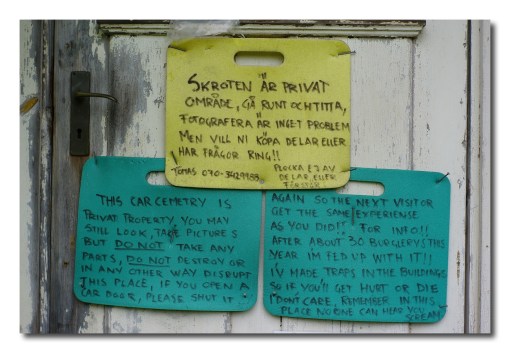 SKROTEN ÄR PRIVAT
OMRÅDE, GÅ RUNT OCH TITTA,
FOTOGRAFERA ÄR INGET PROBLEM
MEN VILL NI KÖPA DELAR ELLER
HAR FRÅGOR RING!!
TOMAS 070-3429988
PLOCKA EJ AV
DELAR ELLER
FÖRSTÖR!
THIS CAR CEMETRY IS
PRIVAT PROPERTY, YOU MAY
STILL LOOK, TAKE PICTURES
BUT DO NOT TAKE ANY
PARTS, DO NOT DESTROY OR
IN ANY OTHER WAY DISRUPT
THIS PLACE, IF YOU OPEN A
CAR DOOR, PLEASE SHUT IT
AGAIN SO THE NEXT VISITOR
GET THE SAME EXPERIENSE
AS YOU DID!! FOR INFO!!
AFTER ABOUT 30 BURGLERYS THIS
YEAR IM FED UP WITH IT!!
I'V MADE TRAPS IN THE BUILDINGS
SO IF YOU'LL GET HURT OR DIE
I DONT CARE, REMEMBER IN THIS
PLACE NO ONE CAN HEAR YOU
SCREAM